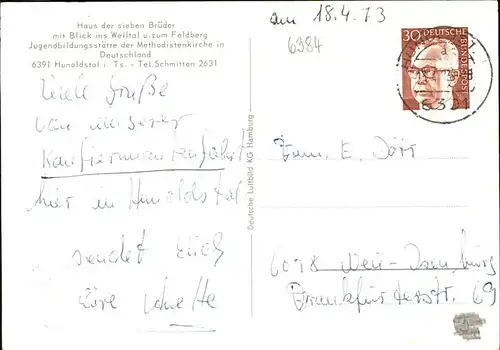 Haus der sieben Brüder
mit Blick ins Weiltal u. zum Feldberg
Jugendbildungsstätte der Methodistenkirche in
Deutschland
6391 Hunoldstal i. Ts. - Tel. Schmitten 2631
am 18.4.73
6384
30
DEUTSCHE BUNDESPOST
Viele Grüße
von unserer
Konfirmandenfahrt
hier in Hunoldstal
sendet Euch
Eure
Deutsche Luftbild KG Hamburg
Fam. E. Dörr
6078 Neu-Isenburg
Frankfurterstr. 69